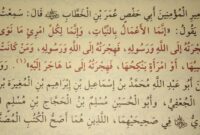 أمير المؤمنين أبي حفص عمر بن الخطاب رضي الله عنه قال: سمعت
يقول: «إنما الأعمال بالنيات، وإنما لكل امرئ ما نوى
هجرته إلى الله ورسوله، فهجرته إلى الله ورسوله، ومن كانت
أو امرأة ينكحها، فهجرته إلى ما هاجر إليه»
أبو عبد الله محمد بن إسماعيل بن إبراهيم بن المغيرة بن
الجعفي، وأبو الحسين مسلم بن الحجاج بن مسلم
في صحيحيهما،